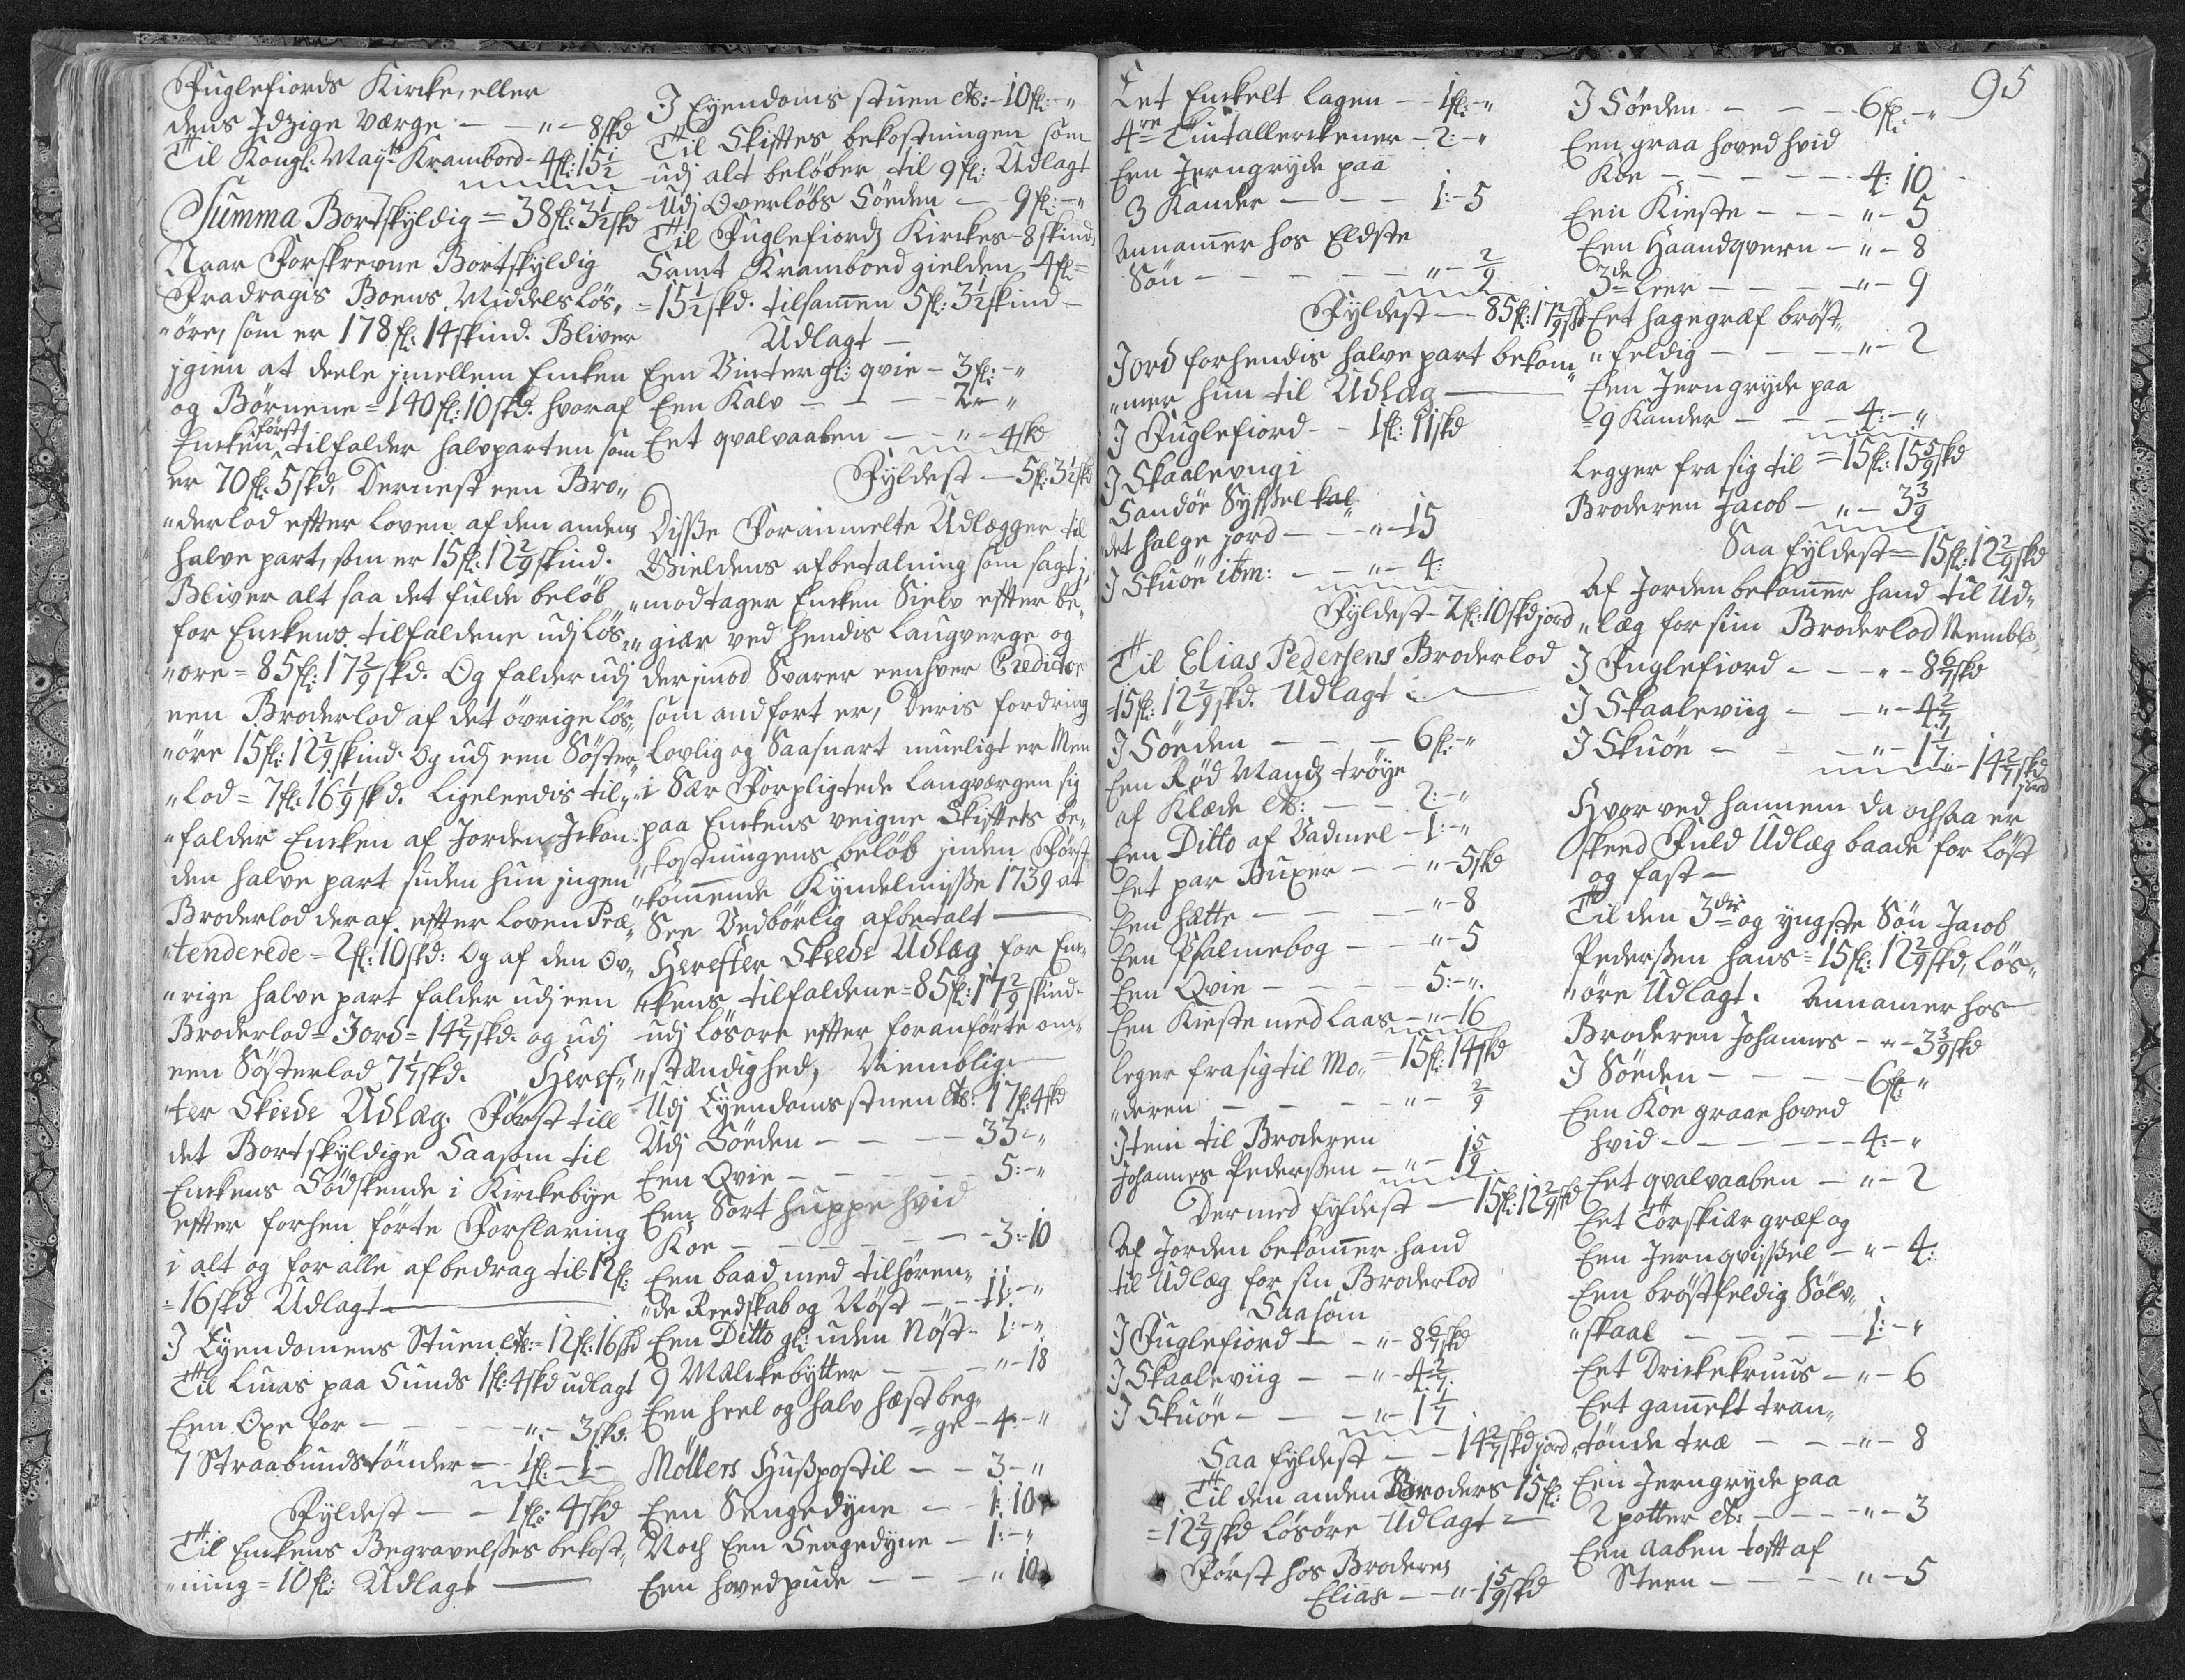 Fuglefiords Kircke, eller
dens Idzige Værge — „ — 8 skd
Til Kongl: Maytt Krambord - 4 fl: 15½
Summa Bortskyldig = 38 fl: 3½ skd
Naar Forskrevne Bortskyldig
Fradragis Boens Middels Løs„
„öre, som er 178 fl: 14 skind. Bliver
igien at deele imellem Encken
og Børnene = 140 fl: 10 skd. hvoraf
Encken først tilfalder halvparten som
er 70 fl: 5 skd, Dernest een Bro„
„derlod efter loven af den anden
halve part, som er 15 fl: 12 2/9 skind.
Bliver alt saa det fulde beløb
for Enckens tilfaldene udj Løs„
„øre = 85 fl: 17 2/9 skd. Og falder udj
een Broderlod af det övrige Løs„
„öre 15 fl: 12 2/9 skind. Og udj een Søster„
„Lod = 7 fl: 16 1/9 skd. Ligeleedis til„
„falder Encken af Jorden
den halve part siden hun ingen
Broderlod deraf efter Loven Præ„
„tenderede = 2 fl: 10 skd: Og af den Ov„
„rige halve part falder udj een
Broderlod = Jord = 14 2/7 skd. og udj
een Søsterlod 7 1/7 skd. Heref„
„ter Skeede Udlæg. Først till
det Bortskyldige Saasom til
Enckens Södskende i Kirckebye
efter forhen førte Forklaring
i alt og for alle afbedrag til 12 fl:
= 16 skd Udlagt —
I Eyendomens Stuen etc: = 12 fl: 16 skd
Til Lucas paa Sunds 1 fl: 4 skd udlagt
Een Oxe for — — — „ - 3 skd.
7 Straabundstönder — 1 fl: - 1 -
Fyldest — — 1 fl: 4 skd
Til Enckens Begravelses bekost„
„ning = 10 fl: Udlagt —
I Eyendoms stuen etc: - 10 fl: - „
Til Skiftes bekostningen som
udj alt beløber til 9 fl: Udlagt
Udj Overløbs Söeden — 9 fl: - „
Til Fuglefiordz Kirckes - 8 skind,
Samt Krambord gielden - 4 fl: =
= 15½ skd. tilsamen 5 fl: 3½ skind —
Udlagt —
Een Vinter gl: qvie - 3 fl: - „
Een Kalv — — — 2 - „
Eet qvalvaaben — „ - 4 skd
Fyldest — 5 fl: 3½ skd
Disse Foranmelte Udlægger til
Gieldens afbetalning som sagt i„
„modtager Encken Sielv efter be„
„giær ved hendis Laugverge og
derimod Svarer eenhver Creditor
som andført er, deris fordring
Lovlig og Saasnart mueligt er Men
i Sær Forpligtede Laugværgen sig
paa Enckens veigne Skiftets be„
„kostningens beløb inden Først
„kommende Kyndelmisse 1739 at
See Vedbörlig afbetalt —
Herefter Skeede Udlæg for En„
„kens tilfaldene = 85 fl: 17 2/9 skind.
udj Løsöre efter foranførte om„
„stændighed, Nemblig —
Udj Eyendoms stuen etc: 17 fl: 4 skd
Udj Söeden — — — 33 - „
Een Qvie — — — 5: - „
Een Sort huppe hvid
Koe — — — — 3: - 10
Een baad med tilhøren„
„de Reedskab og Nøst — — 11: - „
Een Ditto gl: uden Nøst - 1: - „
9 Mælckebytter — — „ - 18
Een heel og halv hæst beg„
= ge - 4: - „
Möllers Huspostil — — 3 - „
Een Sengedyne — — 1: 10
Noch Een Sengedyne — 1: - „
Een hovedpude — — — „ 10
95
Eet Enckelt lagen — 1 fl: - „
4re Tintallerckener — 2: - „
Een Jerngryde paa
3 Kander — — — 1: - 5
Annammer hos Eldste
Søn — — — — „ - 2/9
Fyldest — 85 fl: 17 2/9 skd
Jord forhendis halve part bekom„
„mer hun til Udlæg —
I Fuglefiord — 1 fl: 11 skd
I Skaalevug i
Sandöe Syssel kal„
det halge jord — — „ - 15
I Skuöe ibm: — — „ - 4:
Fyldest - 2 fl: 10 skd jord
Til Elias Pedersens Broderlod
= 15 fl: 12 2/9 skd. Udlagt —
I Söeden — — — 6 fl: - „
Een Rød Mandz tröye
af Klæde etc: — — 2: - „
Een Ditto af Vadmel — 1: - „
Eet par Buxer — — „ - 5 skd
Een hatte — — — „ - 8
Een Psalmebog — — „ - 5
Een Qvie — — — — 5: - „
Een Kieste med Laas — „ - 16
= 15 fl: 14 skd
Leger fra sig til Mo„
„deren — — — „ - 2/9
Item til Broderen
Johannes Pedersen — „ - 1 5/9
Dermed fyldest — 15 fl: 12 2/9 skd
Af Jorden bekommer hand
til Udlæg for sin Broderlod
Saasom
I Fuglefiord — — „ - 8 6/7 skd
I Skaaleviig — — „ - 4 2/7
I Skuöe — — — „ - 1 1/7
Saa fyldest — — 14 2/7 skd jord
Til den anden Broders 15 fl:
= 12 2/9 skd Løsöre Udlagt —
Først hos Broderen
Elias — — „ - 1 5/9 skd
I Söeden — — — 6 fl: - „
Een graa hoved hvid
Koe — — — — 4: 10
Een Kieste — — — „ - 5
Een Haandqvern — „ - 8
3de Leer — — — „ - 9
Eet hagegræf bröst„
„feldig — — — „ - 2
Een Jerngryde paa
= 9 Kander — — 4: - „
= 15 fl: 15 5/9 skd
Legger fra sig til
Broderen Jacob — „ - 3 3/9
Saa fyldest = 15 fl: 12 2/9 skd
Af Jorden bekommer hand til Ud„
„læg for sin Broderlod Nembl:
I Fuglefiord — — „ - 8 6/7 skd
I Skaaleviig — — „ - 4 2/7
I Skuöe — — — „ - 1 1/7
14 2/7 skd jord
Hvorved hannem da ochsaa er
skeed Fuld Udlæg baade for Løst
og fast —
Til den 3die og yngste Søn Jacob
Pedersen hans = 15 fl: 12 2/9 skd, Løs„
„öre Udlagt. Annamer hos
Broderen Johannes — „ - 3 3/9 skd
I Söeden — — — — 6 fl: „
Een Koe graae hoved
hvid — — — — 4: - „
Eet qvalvaaben — „ - 2
Eet Törskiær græf og
Een Jernqvissel — „ - 4:
Een bröstfeldig Sölv„
„skaal — — — — 1: - „
Eet Drickekruus — „ - 6
Eet gamelt tran„
„tønde træ — — — „ - 8
Een Jerngryde paa
2 potter etc: — — — „ - 3
Een aaben toft af
Steen — — — — „ - 5